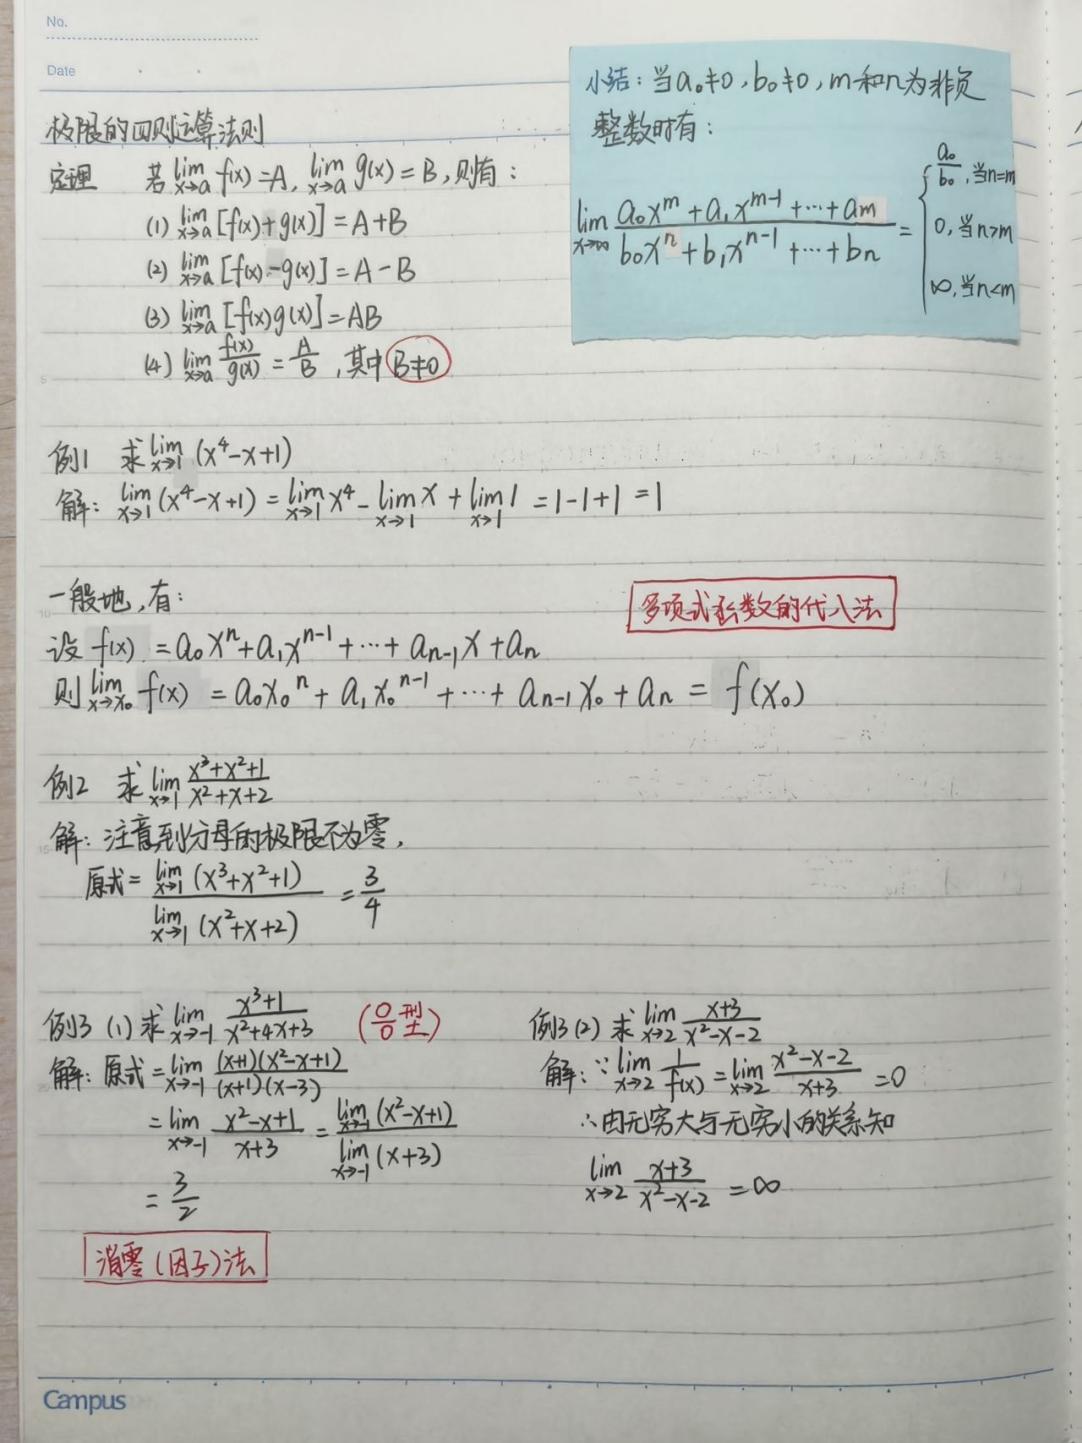 No.
Date
小结:当a₀≠0,b₀≠0,m和n为非负
整数时有:
lim x→∞ (a₀x^m+a₁x^(m-1)+…+am)/(b₀x^n+b₁x^(n-1)+…+bn) = { a₀/b₀,当n=m
0,当n>m
∞,当n<m
极限的四则运算法则
定理 若 lim x→a f(x)=A, lim x→a g(x)=B,则有:
(1) lim x→a [f(x)+g(x)]=A+B
(2) lim x→a [f(x)-g(x)]=A-B
(3) lim x→a [f(x)g(x)]=AB
(4) lim x→a f(x)/g(x) = A/B ,其中B≠0
例1 求 lim x→1 (x⁴-x+1)
解: lim x→1 (x⁴-x+1) = lim x→1 x⁴ - lim x→1 x + lim x→1 1 =1-1+1=1
一般地,有:
多项式函数的代入法
设 f(x) =a₀xⁿ+a₁x^(n-1)+…+a_(n-1)x+an
则 lim x→x₀ f(x) =a₀x₀^n+a₁x₀^(n-1)+…+a_(n-1)x₀+an = f(x₀)
例2 求 lim x→1 (x³+x²+1)/(x²+x+2)
解:注意到分母的极限不为零,
原式= lim x→1 (x³+x²+1) / lim x→1 (x²+x+2) = 3/4
例3 (1) 求 lim x→-1 (x³+1)/(x²+4x+3) (0/0型)
解:原式= lim x→-1 (x+1)(x²-x+1)/(x+1)(x-3)
= lim x→-1 (x²-x+1)/(x+3) = lim x→-1 (x²-x+1) / lim x→-1 (x+3)
= 3/2
消零(因子)法
例3 (2) 求 lim x→2 (x+3)/(x²-x-2)
解:∵ lim x→2 1/f(x) = lim x→2 (x²-x-2)/(x+3) =0
∴由无穷大与无穷小的关系知
lim x→2 (x+3)/(x²-x-2) =∞
Campus